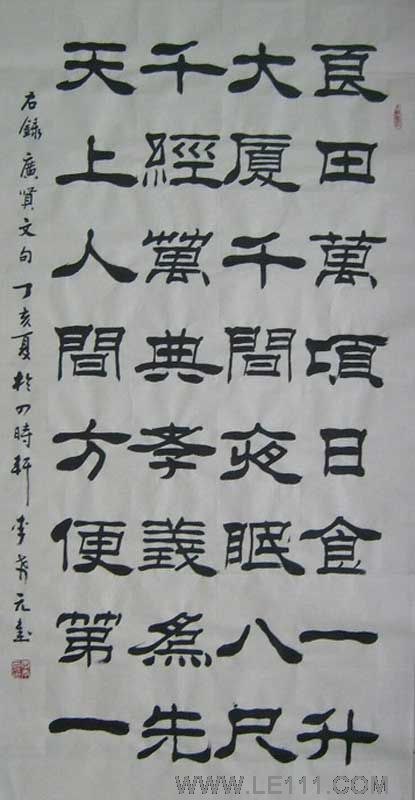 良田萬項日食一升
大厦千間夜眠八尺
千經萬典孝義爲先
天上人間方便第一
右錄廣賢文句丁亥夏於四時軒李元
WWW.LE111.COM